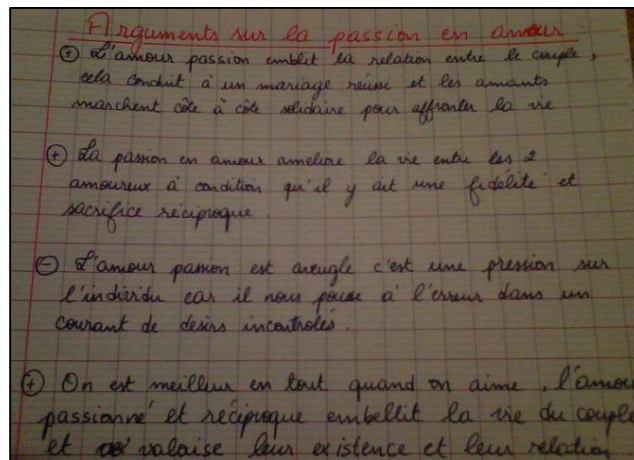 Arguments sur la passion en amour :
⊕ L'amour passion emblit la relation entre le couple,
cela conduit à un mariage réussi et les amants
marchent côte à côte solidaire pour affronter la vie
⊕ La passion en amour améliore la vie entre les 2
amoureux à condition qu'il y ait une fidélité et
sacrifice réciproque.
⊖ L'amour passion est aveugle c'est une pression sur
l'individu car il nous pousse à l'erreur dans un
courant de desirs incontrolés.
⊕ On est meilleur en tout quand on aime, l'amou
passionné et réciproque embellit la vie du couple
et valoise leur existence et leur relation